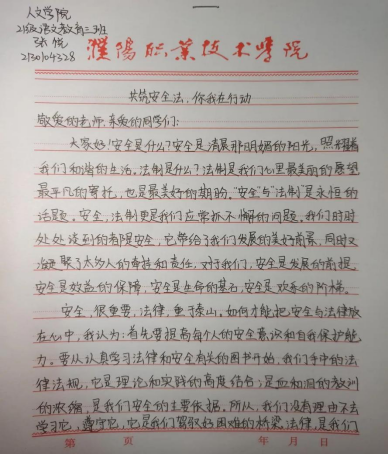 人文学院
21级语文教育三班
张悦
2130104328
濮阳职业技术学院
共筑安全法，你我在行动
敬爱的老师、亲爱的同学们：
大家好！安全是什么？安全是清晨那明媚的阳光，照耀着
我们和谐的生活。法制是什么？法制是我们心里最美丽的愿望
最平凡的寄托，也是最美好的期盼。"安全"与"法制"是永恒的
话题。安全，法制更是我们应常抓不懈的问题。我们时时
处处谈到的都是安全，它带给了我们发展的美好前景，同时又
凝聚了太多人的牵挂和责任，对于我们，安全是发展的前提，
安全是效益的保障，安全是生命的基石，安全是欢乐的阶梯。
安全，很重要，法律，重于泰山。如何才能把安全与法律放
在心中，我认为：首先要提高每个人的安全意识和自我保护能
力。要从认真学习法律和安全有关的图书开始，我们手中的法
律法规，它是理论和实践的高度结合；是血和泪的教训
的浓缩，是我们安全的主要依据。所以，我们没有理由不去
学习它，遵守它，它是我们驾驭好困难的桥梁，法律，是我们
第 页 年 月 日